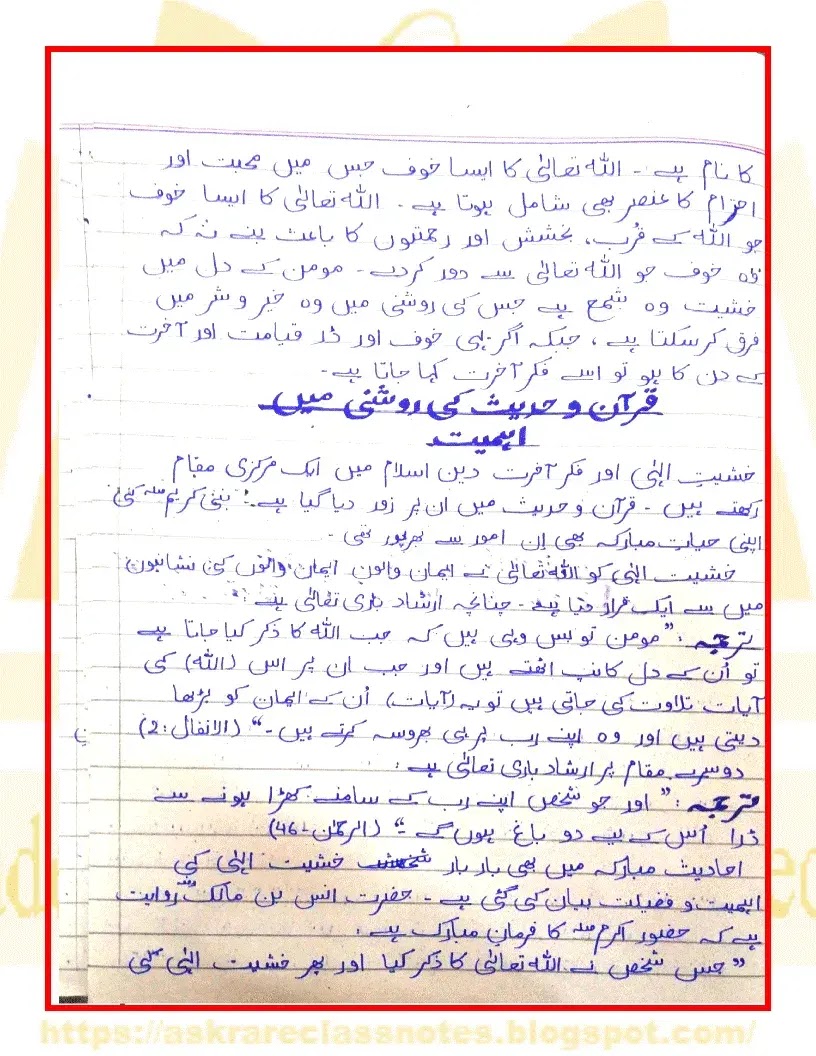 کا نام ہے ۔ اللہ تعالیٰ کا ایسا خوف جس میں محبت اور
احترام کا عنصر بھی شامل ہوتا ہے ۔ اللہ تعالیٰ کا ایسا خوف
جو اللہ کے قُرب، بخشش اور رحمتوں کا باعث بنے نہ کہ
وہ خوف جو اللہ تعالیٰ سے دور کردے ۔ مومن کے دل میں
خشیت وہ شمع ہے جس کی روشنی میں وہ خیر و شر میں
فرق کر سکتا ہے ، جبکہ اگر یہی خوف اور ڈر قیامت اور آخرت
کے دن کا ہو تو اسے فکر آخرت کہا جاتا ہے ۔
قرآن و حدیث کی روشنی میں
اہمیت
خشیتِ الٰہی اور فکر آخرت دین اسلام میں ایک مرکزی مقام
رکھتے ہیں ۔ قرآن و حدیث میں ان پر زور دیا گیا ہے ۔ نبی کریم ﷺ کی
اپنی حیات مبارکہ بھی اِن امور سے بھرپور تھی ۔
خشیت الٰہی کو اللہ تعالیٰ نے ایمان والوں ایمان والوں کی نشانیوں
میں سے ایک قرار دیا ہے ۔ چنانچہ ارشاد باری تعالیٰ ہے :
ترجمہ : ” مومن تو بس وہی ہیں کہ جب اللہ کا ذکر کیا جاتا ہے
تو اُن کے دل کانپ اٹھتے ہیں اور جب ان پر اس (اللہ) کی
آیات تلاوت کی جاتی ہیں تو یہ (آیات) اُن کے ایمان کو بڑھا
دیتی ہیں اور وہ اپنے رب پر ہی بھروسہ کرتے ہیں ۔“ (الانفال : 2)
دوسرے مقام پر ارشاد باری تعالیٰ ہے :
ترجمہ : ” اور جو شخص اپنے رب کے سامنے کھڑا ہونے سے
ڈرا اُس کے لیے دو باغ ہوں گے ۔“ (الرحمٰن - 46)
احادیث مبارکہ میں بھی بار بار خشیت الٰہی کی
اہمیت و فضیلت بیان کی گئی ہے ۔ حضرت انس بن مالکؓ روایت
ہے کہ حضور اکرم ﷺ کا فرمان مبارک ہے :
” جس شخص نے اللہ تعالیٰ کا ذکر کیا اور پھر خشیت الٰہی
https://askrareclassnotes.blogspot.com/